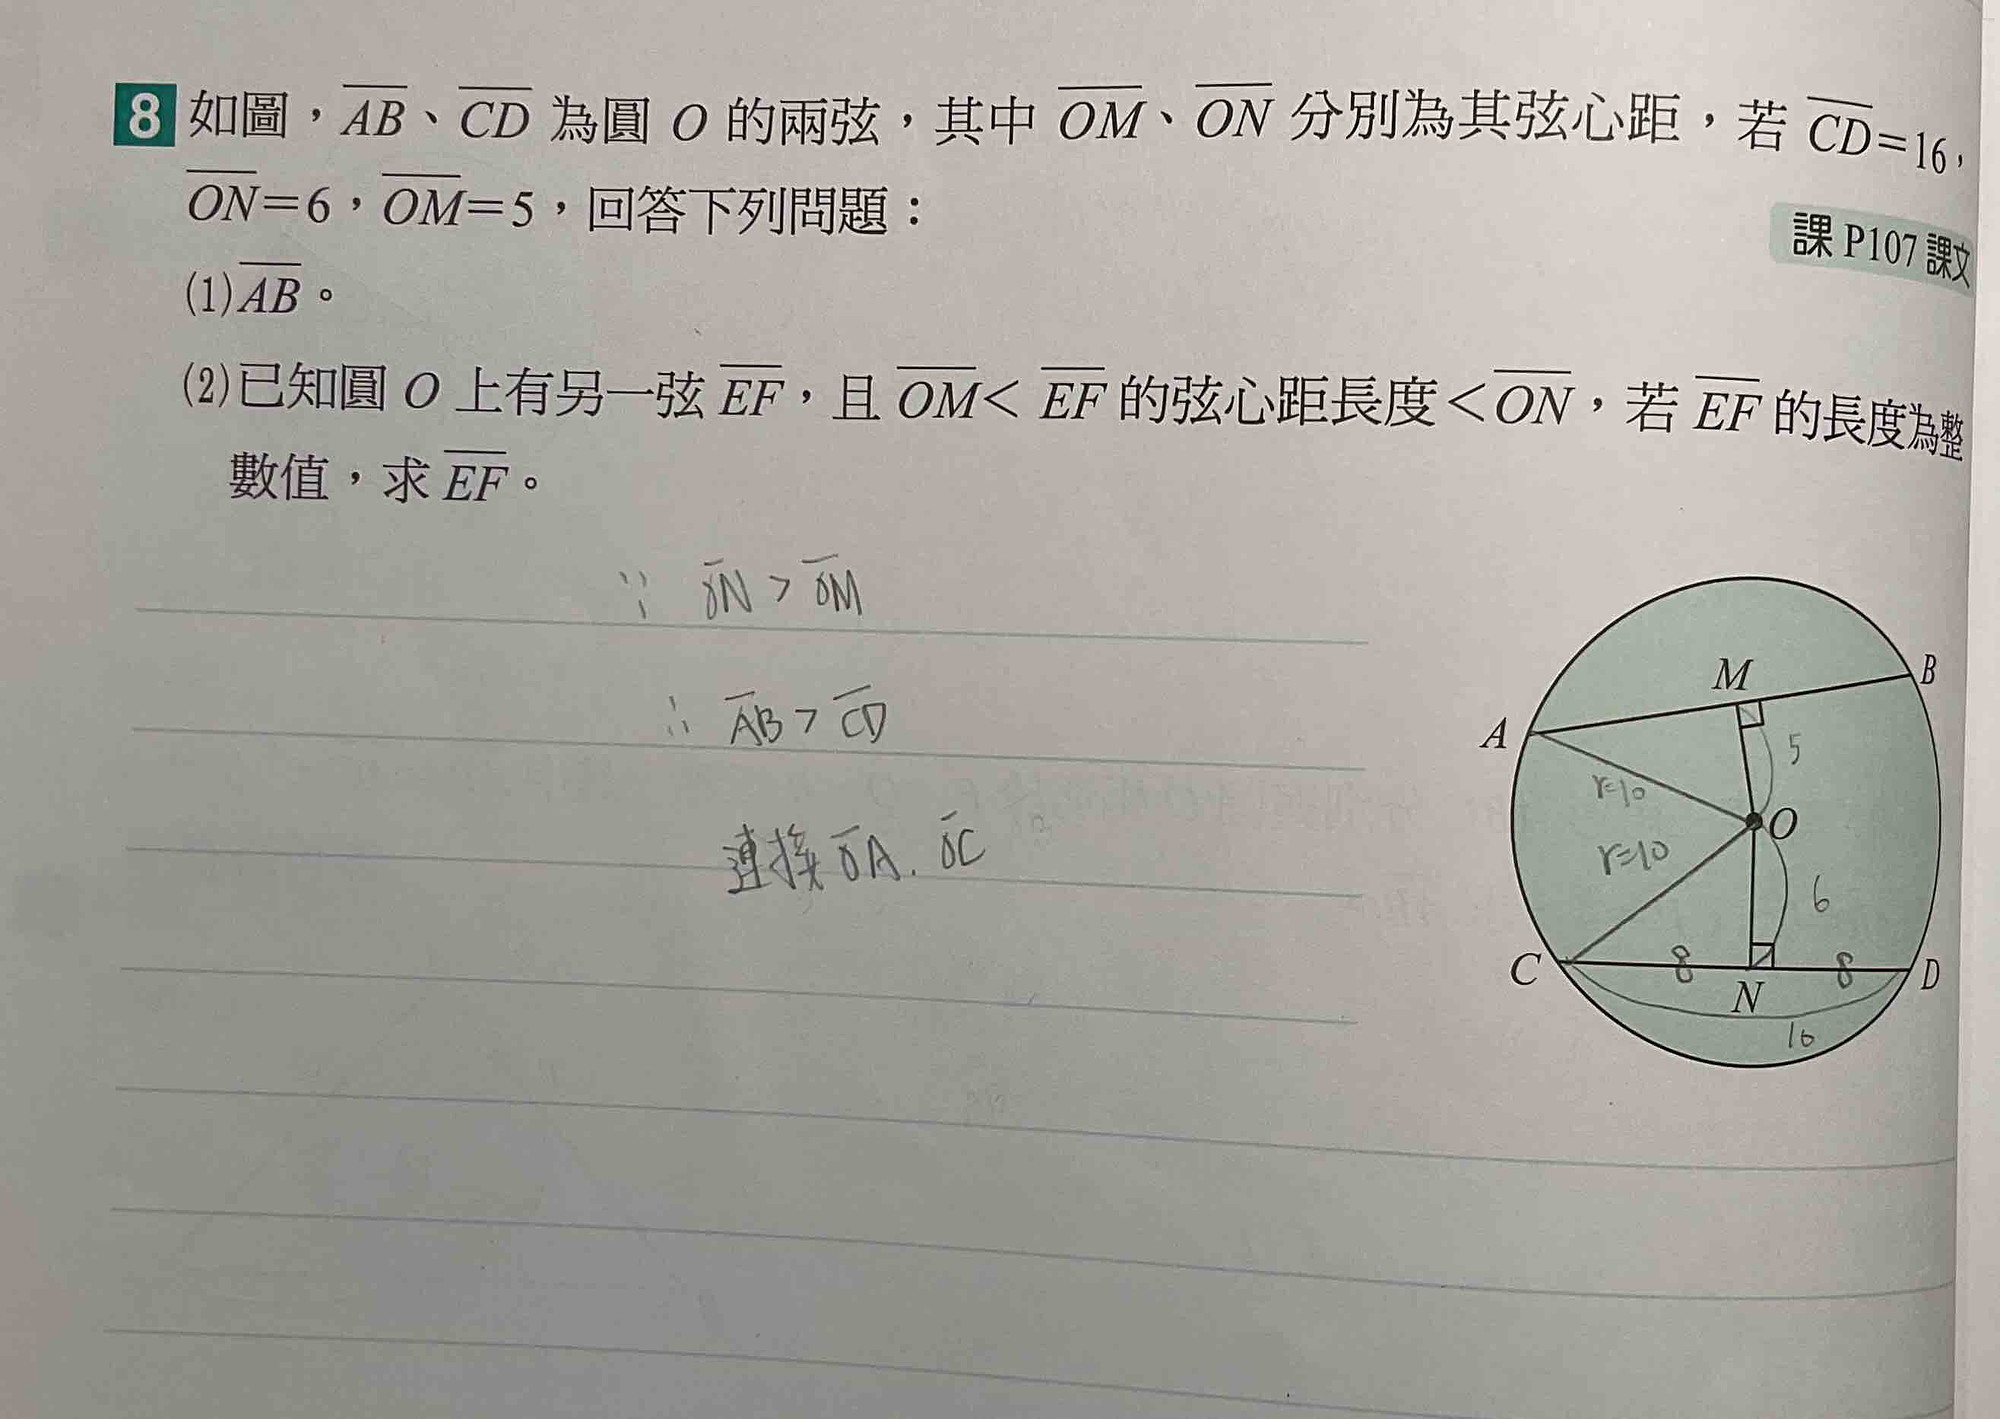 8 如圖，AB、CD 為圓 O 的兩弦，其中 OM、ON 分別為其弦心距，若 CD=16，
ON=6，OM=5，回答下列問題：
課 P107 課文
(1)AB。
(2)已知圓 O 上有另一弦 EF，且 OM< EF 的弦心距長度<ON，若 EF 的長度為整
數值，求 EF。
∵ ON > OM
∴ AB > CD
連接 OA. OC
M
B
A
5
r=10
O
r=10
6
C
8
8
D
N
16